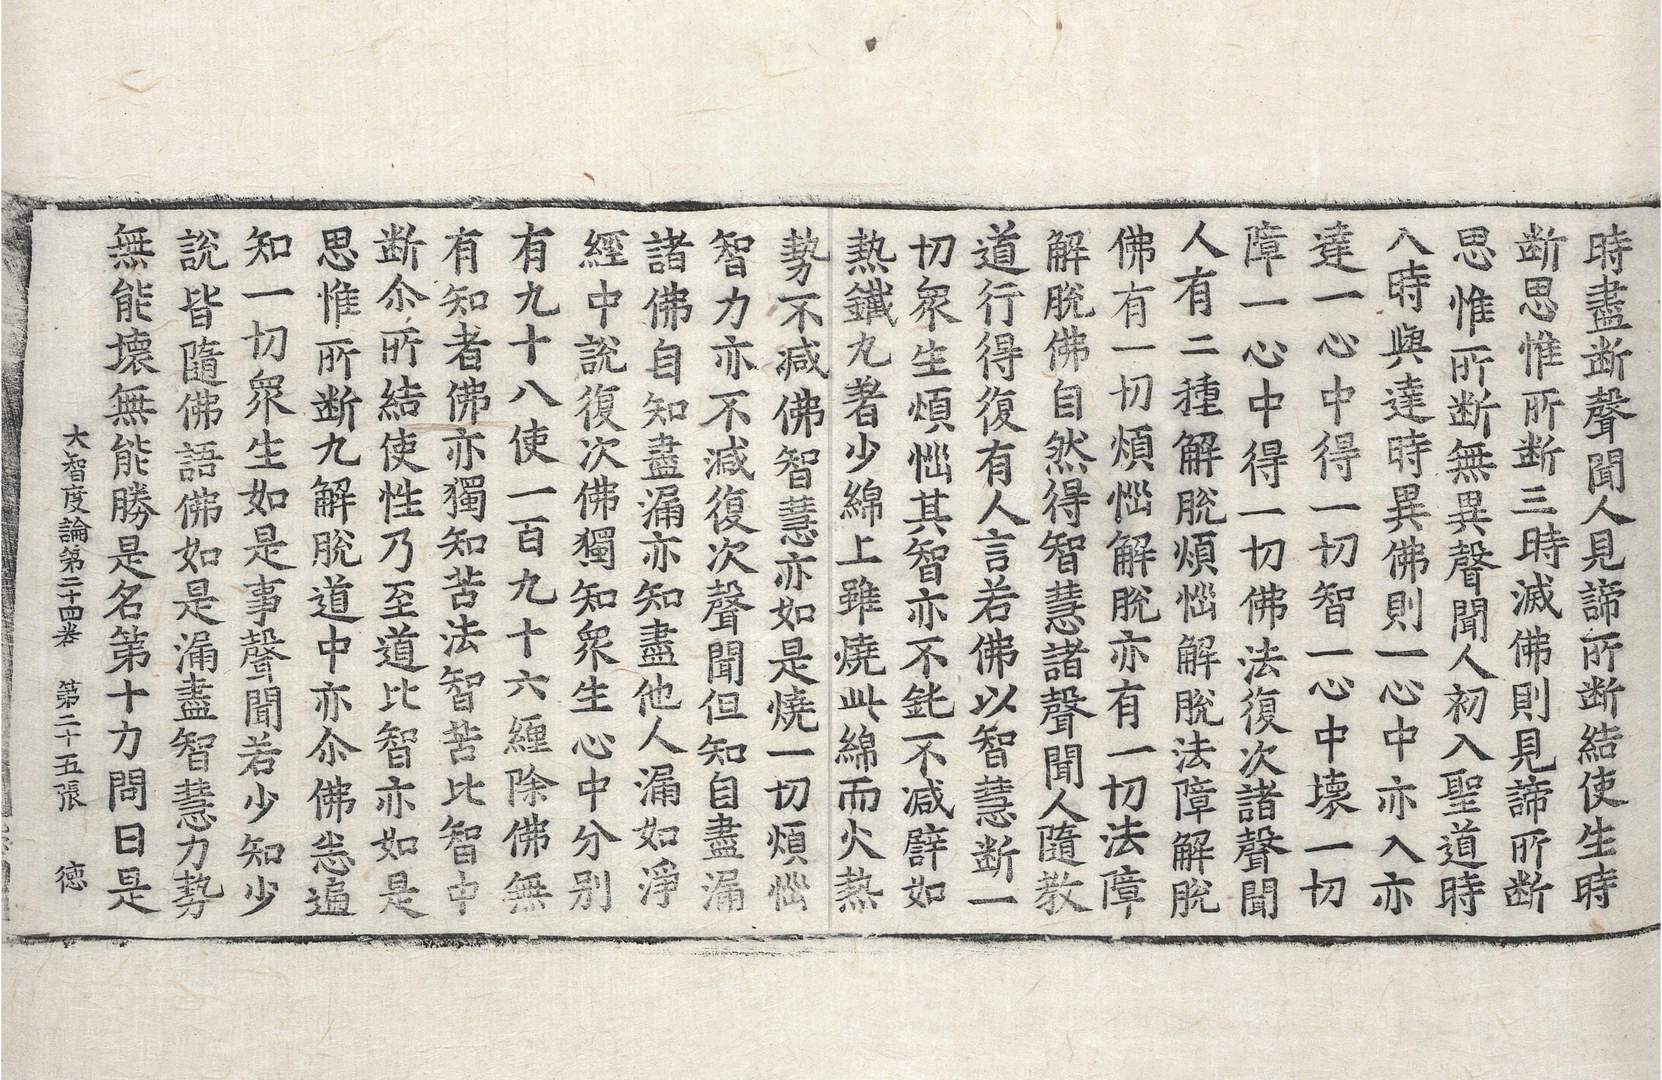 時盡断聲聞人見諦所断結使生時
断思惟所断三時滅佛則見諦所断
思惟所断無異聲聞人初入聖道時
入時與達時異佛則一心中亦入亦
達一心中得一切智一心中壞一切
障一心中得一切佛法復次諸聲聞
人有二種解脫煩惱解脫法障解脫
佛有一切煩惱解脫亦有一切法障
解脫佛自然得智慧諸聲聞人隨教
道行得復有人言若佛以智慧断一
切衆生煩惱其智亦不鈍不減譬如
熱鐵丸著少綿上雖燒此綿而火熱
勢不減佛智慧亦如是燒一切煩惱
智力亦不減復次聲聞但知自盡漏
諸佛自知盡漏亦知盡他人漏如淨
經中說復次佛獨知衆生心中分別
有九十八使一百九十六纏除佛無
有知者佛亦獨知苦法智苦比智中
断尒所結使性乃至道比智亦如是
思惟所断九解脫道中亦尒佛悉遍
知一切衆生如是事聲聞若少知少
說皆隨佛語佛如是漏盡智慧力勢
無能壞無能勝是名第十力問曰是
大智度論第二十四卷 第二十五張 德